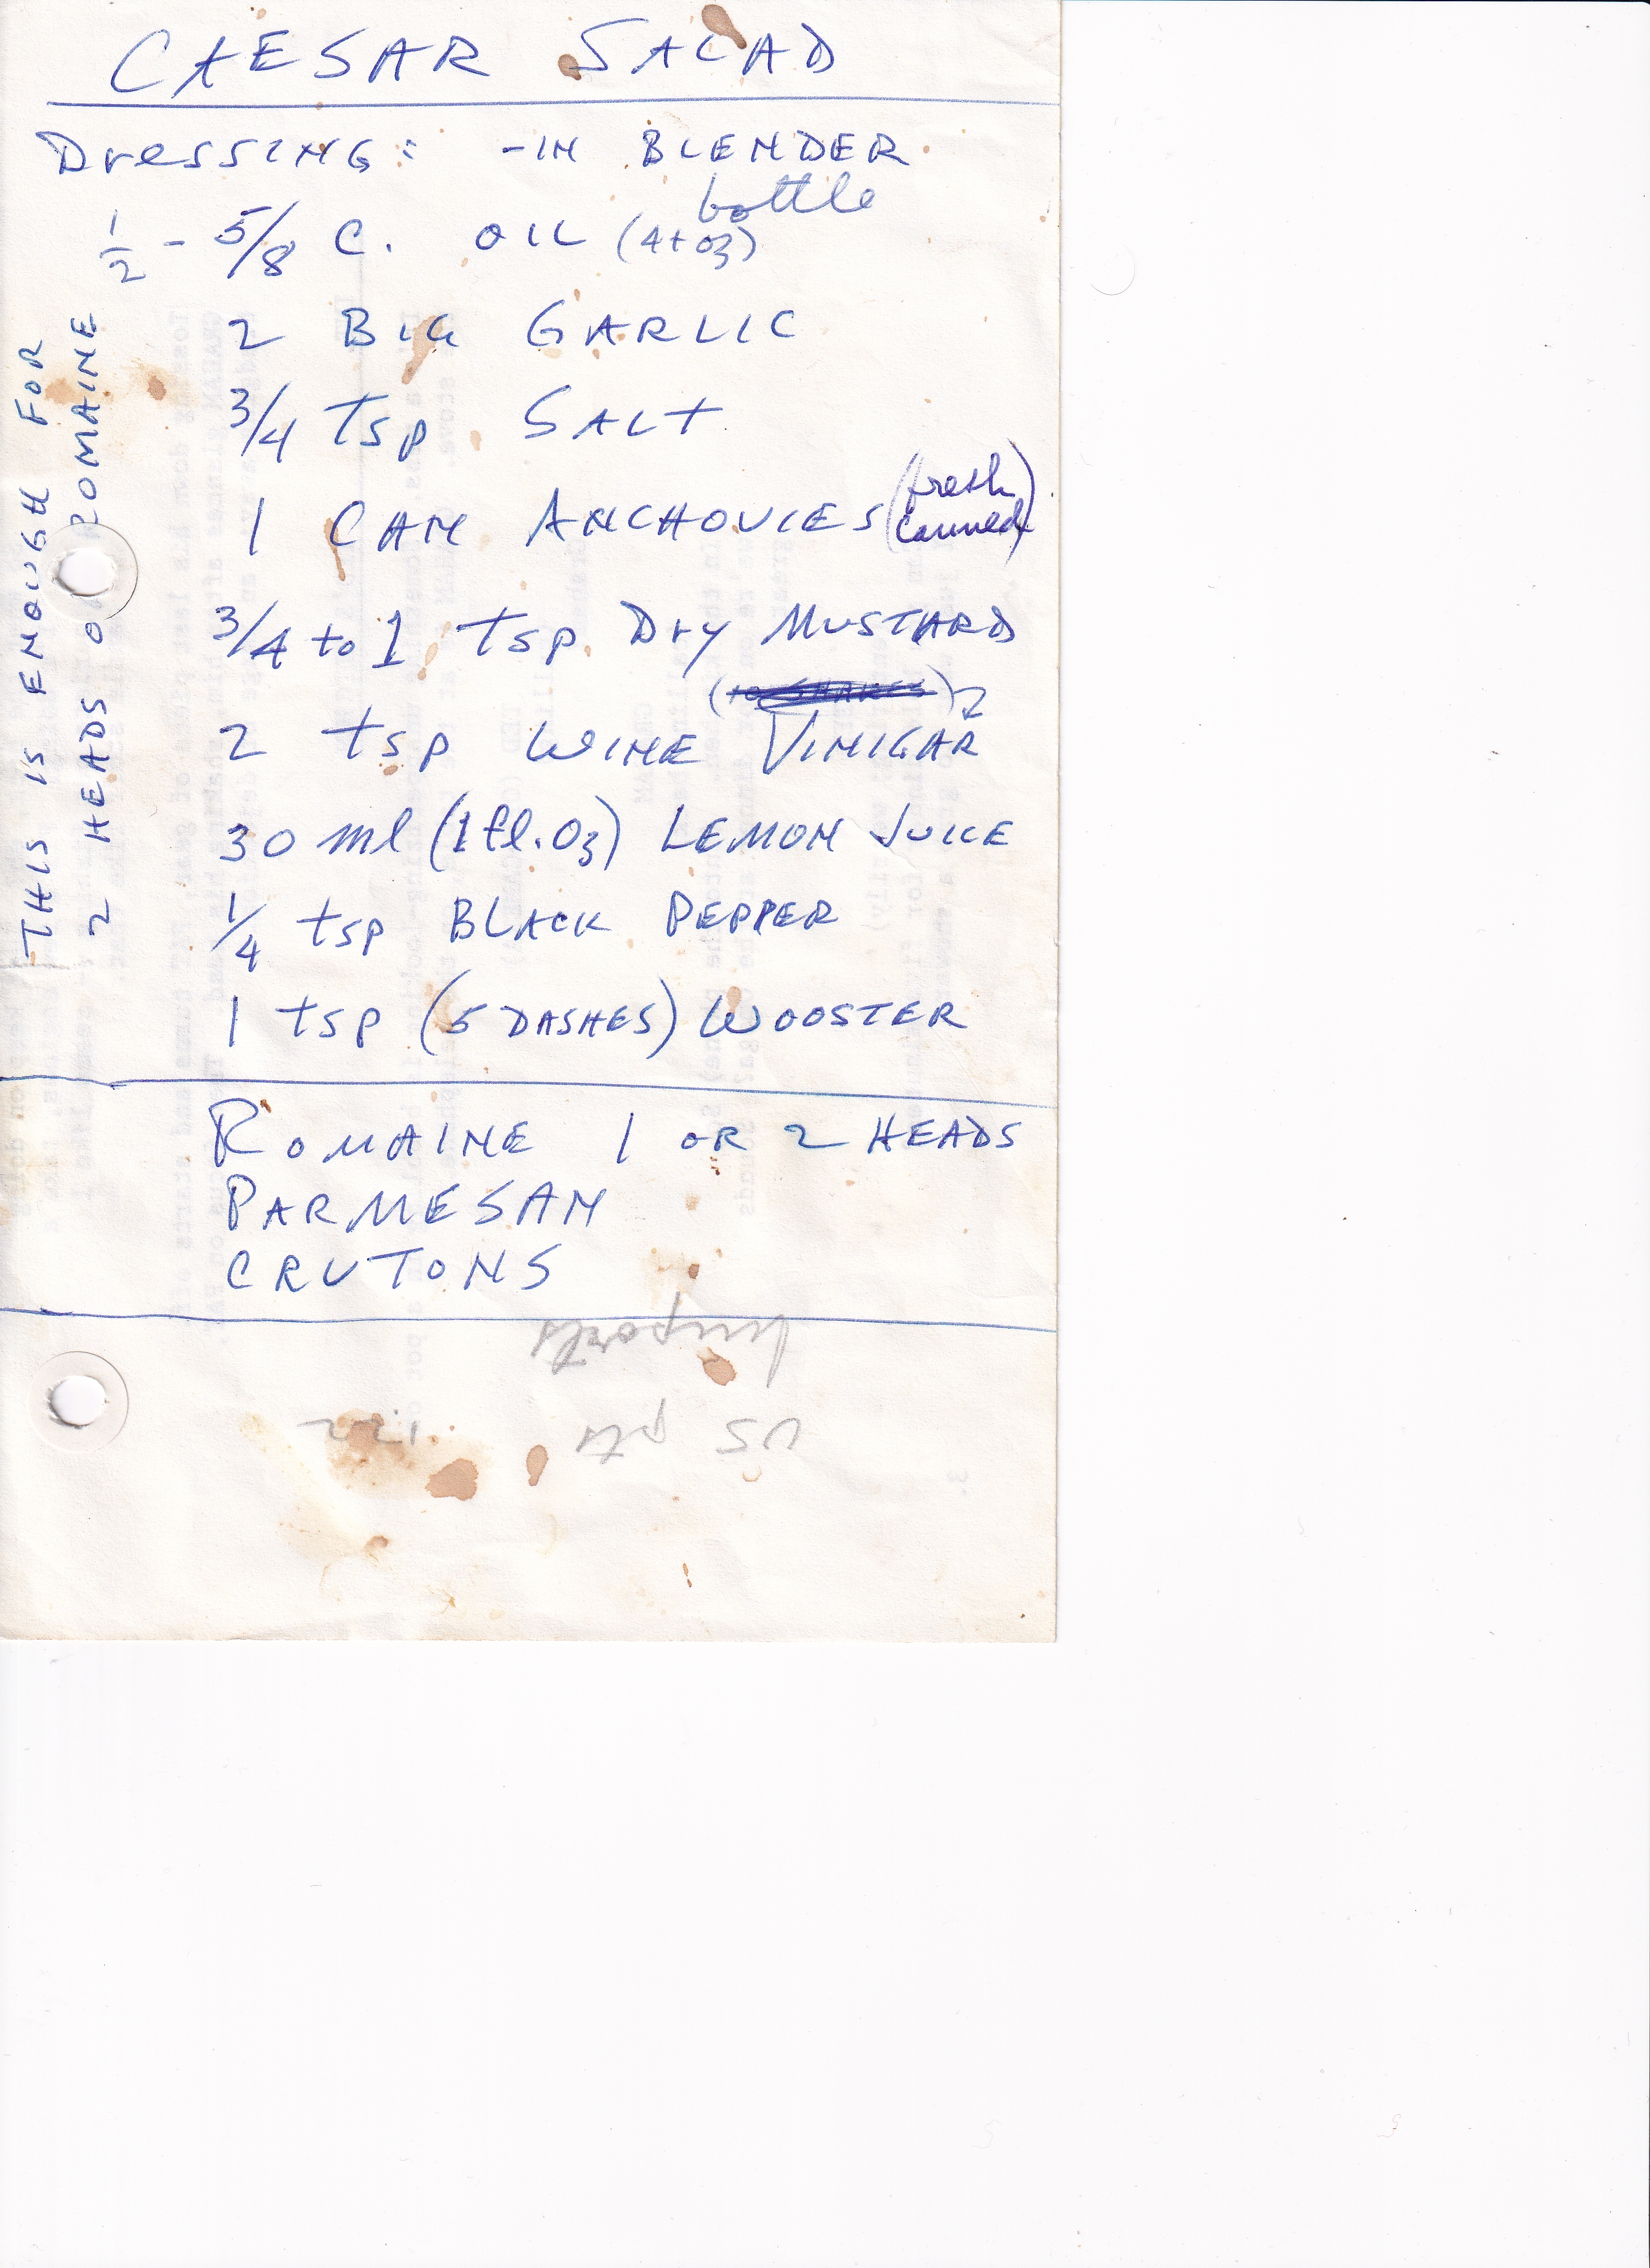 CAESAR SALAD
Dressing: - IN BLENDER
bottle
1/2 - 5/8 C. OIL (4+ oz)
2 BIG GARLIC
3/4 Tsp SALT
1 CAN ANCHOVIES (fresh canned)
3/4 to 1 Tsp. Dry MUSTARD
2 Tsp WINE VINIGAR
30 ml (1 fl. Oz) LEMON JUICE
1/4 tsp BLACK PEPPER
1 Tsp (5 DASHES) WOOSTER
ROMAINE 1 OR 2 HEADS
PARMESAN
CRUTONS
THIS IS ENOUGH FOR
2 HEADS OF ROMAINE
Imports
US